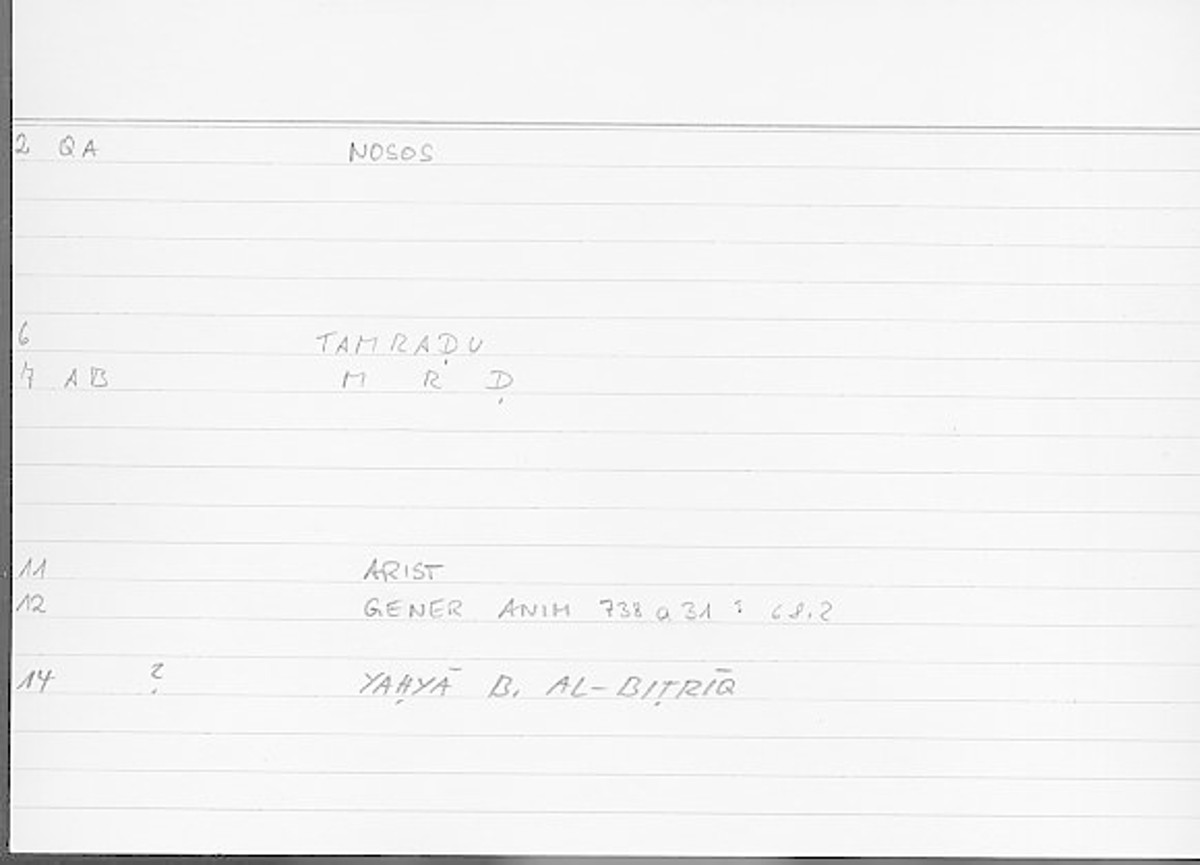 2 QA NOSOS
6 TAMRAḌU
7 AB M R Ḍ
11 ARIST
12 GENER ANIM 738 a 31 : 68.2
14 ? YAḤYĀ B. AL-BIṬRĪQ